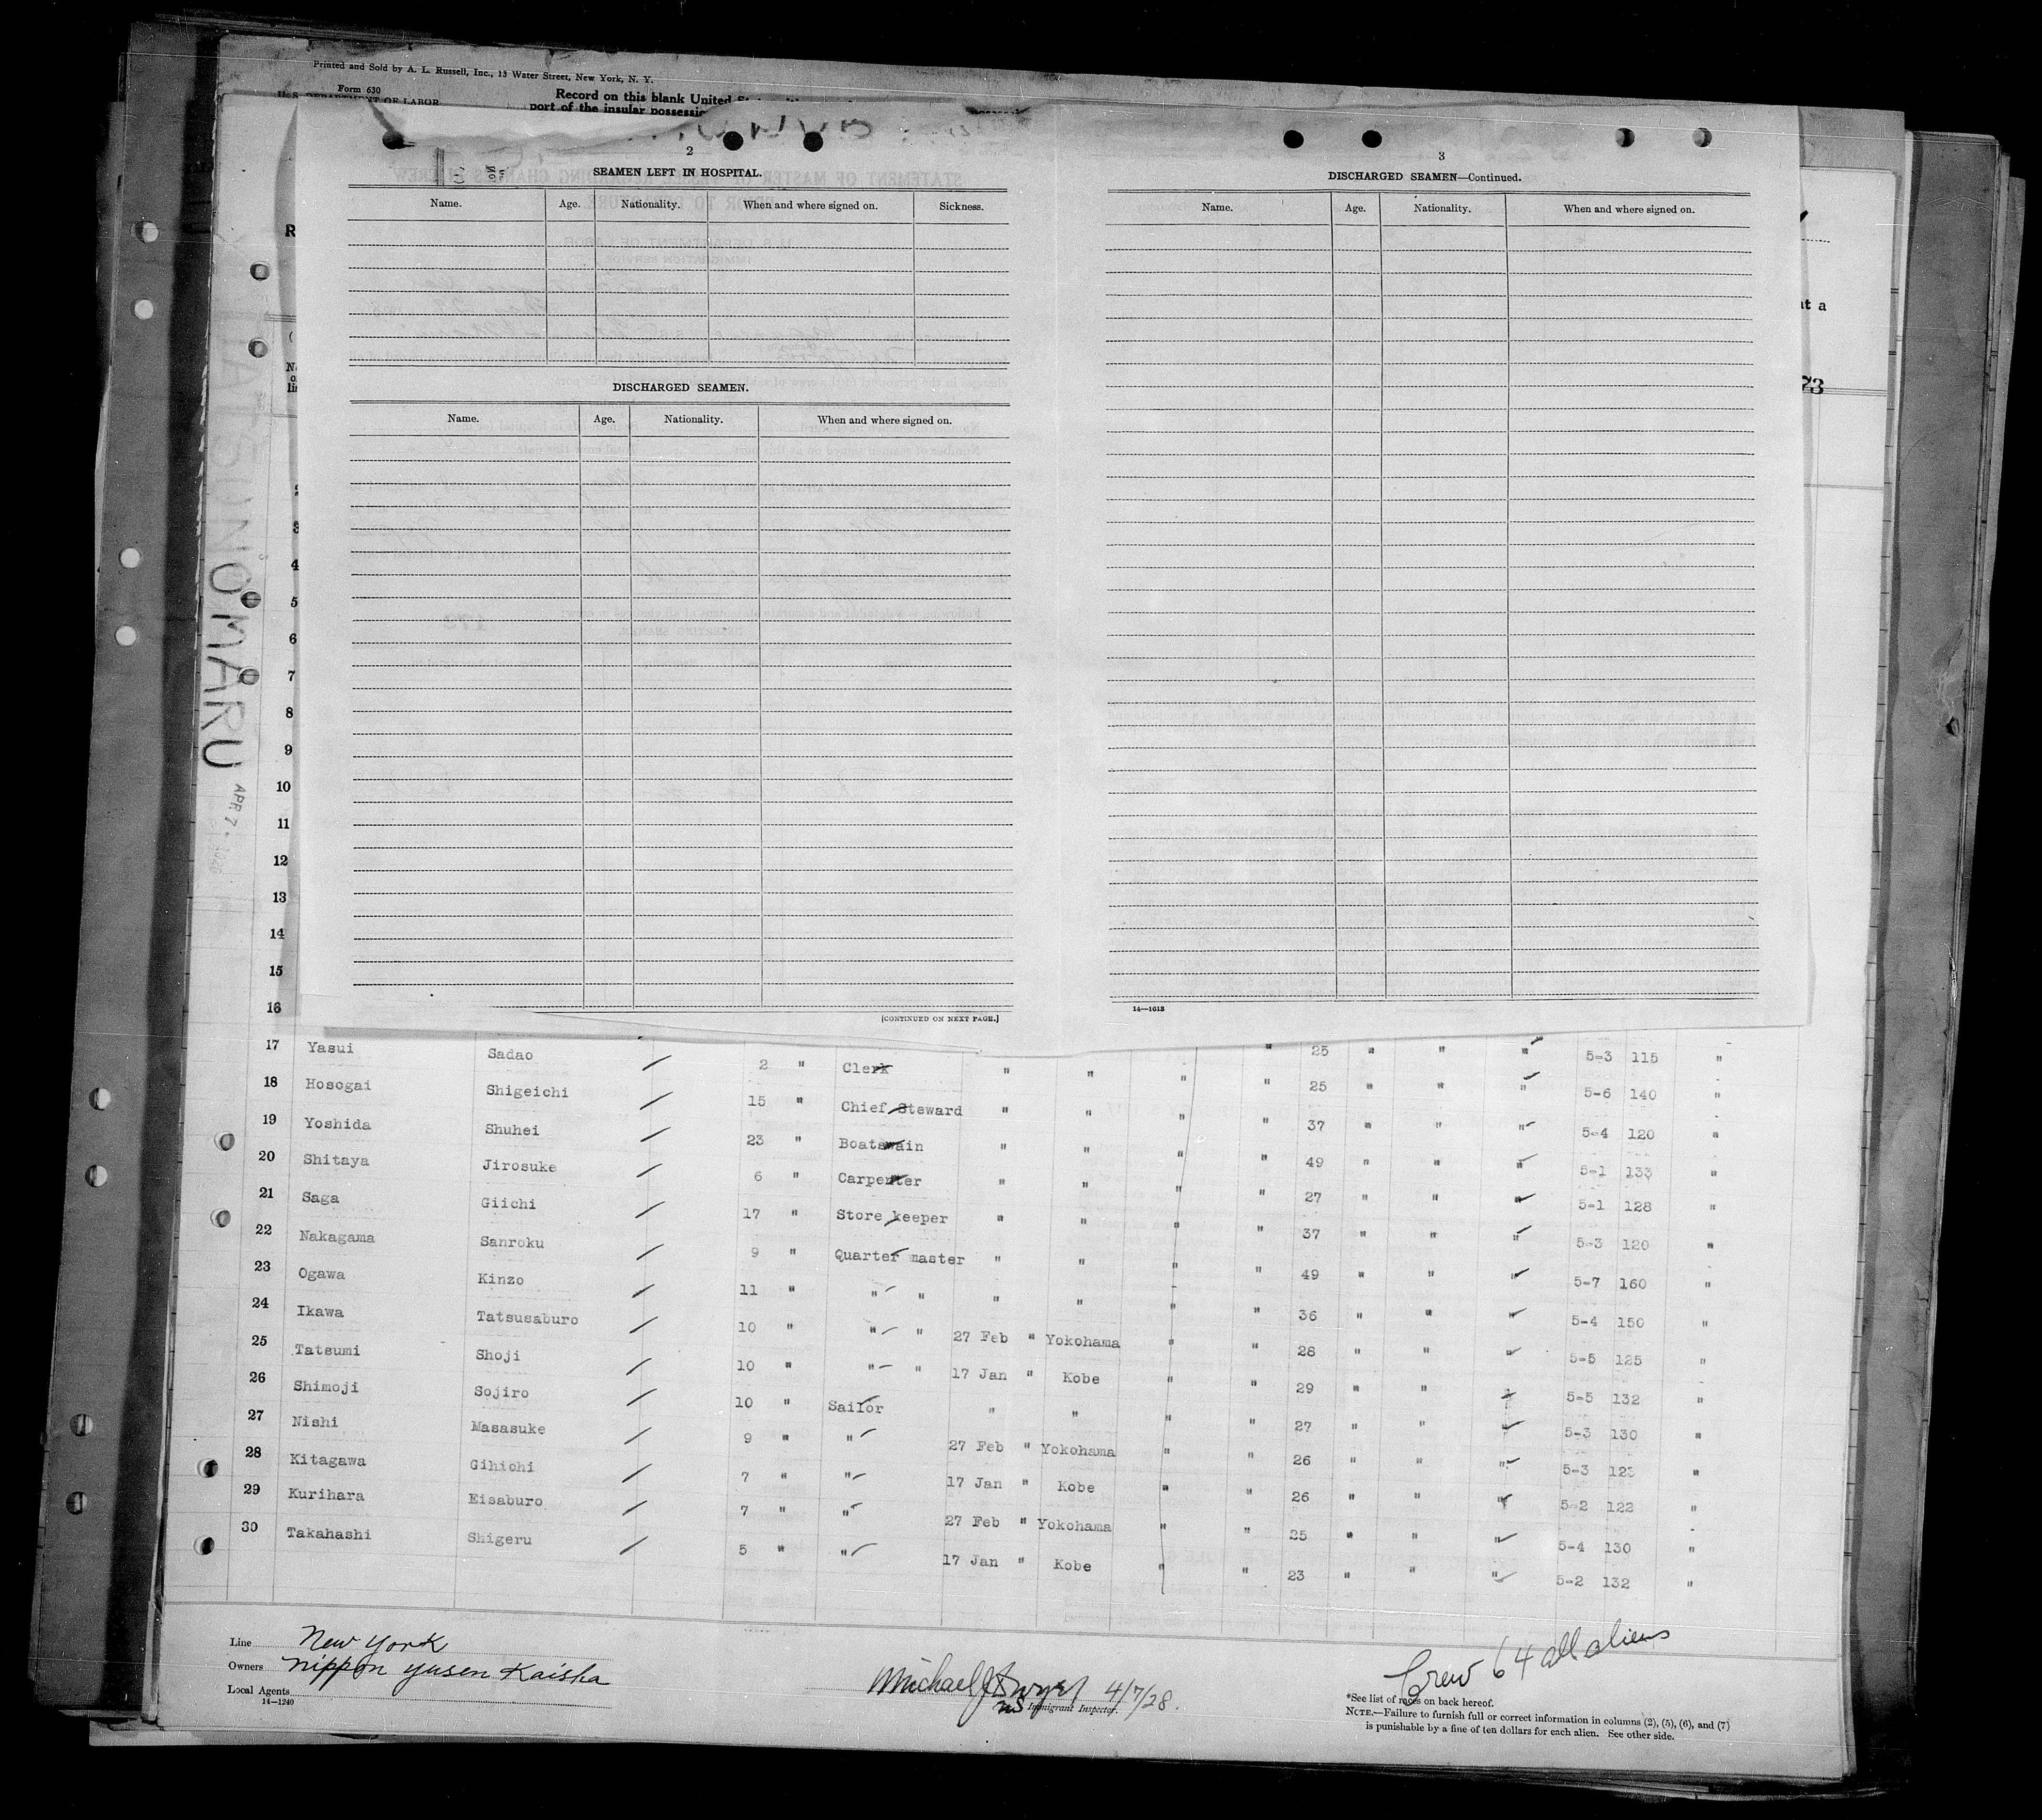 Printed and Sold by A. L. Russell, Inc., 13 Water Street, New York, N. Y.
Form 630
U. S. DEPARTMENT OF LABOR
Record on this blank United
port of the insular
2
SEAMEN LEFT IN HOSPITAL.
Name. Age. Nationality. When and where signed on. Sickness.
DISCHARGED SEAMEN.
Name. Age. Nationality. When and where signed on.
[CONTINUED ON NEXT PAGE.]
3
DISCHARGED SEAMEN—Continued.
Name. Age. Nationality. When and where signed on.
14—1613
at a
MARU
APR 7 -
3
4
5
6
7
8
9
10
11
12
13
14
15
16
17 Yasui Sadao 2 " Clerk " " " " 25 " " " 5-3 115 "
18 Hosogai Shigeichi 15 " Chief Steward " " " " 25 " " " 5-6 140 "
19 Yoshida Shuhei 23 " Boatswain " " " " 37 " " " 5-4 120 "
20 Shitaya Jirosuke 6 " Carpenter " " " " 49 " " " 5-1 133 "
21 Saga Giichi 17 " Store keeper " " " " 27 " " " 5-1 128 "
22 Nakagama Sanroku 9 " Quarter master " " " " 37 " " " 5-3 120 "
23 Ogawa Kinzo 11 " " " " " " " 49 " " " 5-7 160 "
24 Ikawa Tatsusaburo 10 " " " 27 Feb " Yokohama " " 36 " " " 5-4 150 "
25 Tatsumi Shoji 10 " " " 17 Jan " Kobe " " 28 " " " 5-5 125 "
26 Shimoji Sojiro 10 " Sailor " " " " 29 " " " 5-5 132 "
27 Nishi Masasuke 9 " " 27 Feb " Yokohama " " 27 " " " 5-3 130 "
28 Kitagawa Gihichi 7 " " 17 Jan " Kobe " " 26 " " " 5-3 123 "
29 Kurihara Eisaburo 7 " " 27 Feb " Yokohama " " 26 " " " 5-2 122 "
30 Takahashi Shigeru 5 " " 17 Jan " Kobe " " 25 " " " 5-4 130 "
23 " " " 5-2 132 "
Line New York
Owners Nippon Yusen Kaisha
Local Agents
14—1240
Michael J. Dwyer 4/7/28.
Immigrant Inspector.
Crew 64 all aliens
*See list of races on back hereof.
NOTE.—Failure to furnish full or correct information in columns (2), (5), (6), and (7)
is punishable by a fine of ten dollars for each alien. See other side.